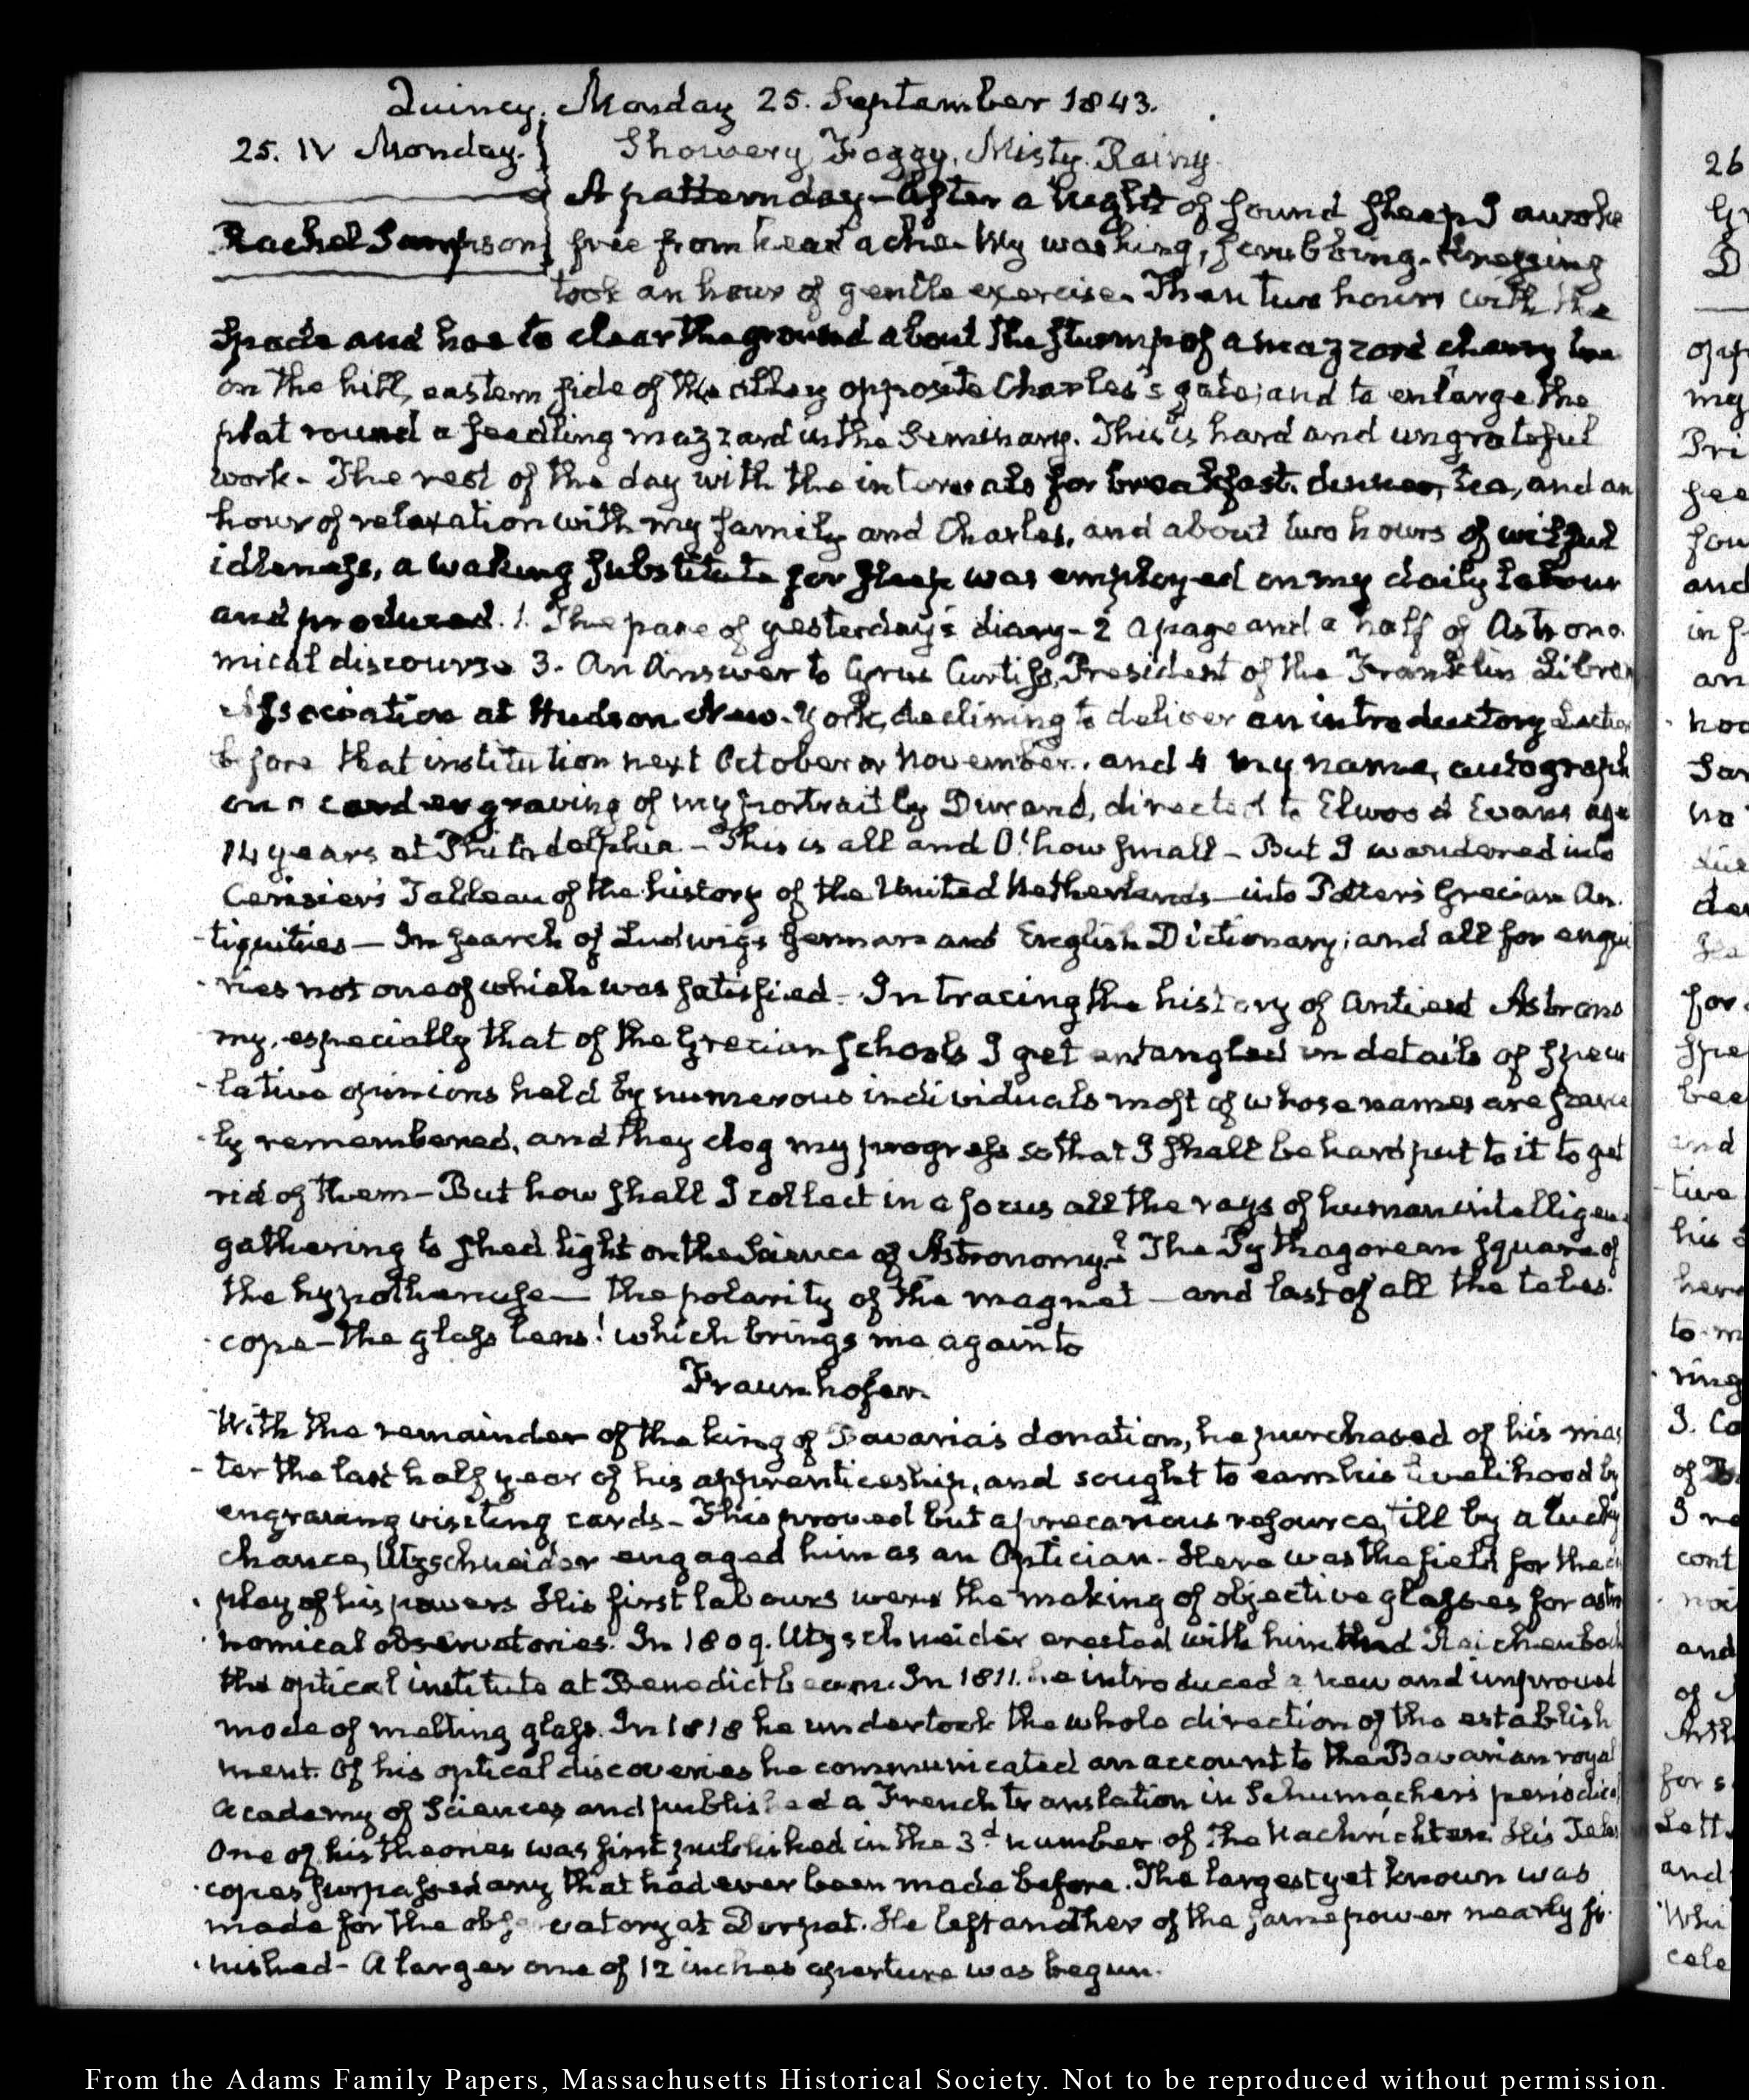 Quincy, Monday 25. September 1843.
25. IV Monday. Showery, Foggy, Misty. Rainy.
A pattern day – After a night of sound sleep I awoke
Rachel Sampson free from head ache. My washing, scrubbing. dressing
took an hour of gentle exercise. Then two hours with the
spade and hoe to clear the ground about the stump of a mazzard cherry tree
on the hill, eastern side of the alley opposite Charles's gate; and to enlarge the
plat round a seedling mazzard in the Seminary. This is hard and ungrateful
work. The rest of the day with the intervals for breakfast. dinner, tea, and an
hour of relaxation with my family and Charles, and about two hours of wilful
idleness, a waking substitute for sleep was employed on my daily labour
and produced. 1. The page of yesterday's diary – 2 a page and a half of Astrono-
mical discourse 3. An Answer to Cyrus Curtiss, President of the Franklin Libra
Association at Hudson New-York, declining to deliver an introductory Lectur
before that institution next October or November. and 4 my name, autograph
on a card engraving of my portrait by Durand, directed to Elwood Evans age
14 years at Philadelphia – This is all and O! how small – But I wandered into
Cerisier's Tableau of the history of the United Netherlands – into Potter's Grecian An-
-tiquities – In search of Ludwig's German and English Dictionary; and all for enqui
-ries not one of which was satisfied – In tracing the history of antient Astrono
my, especially that of the Grecian schools I get entangled in details of specu
-lative opinions held by numerous individuals most of whose names are scarce
-ly remembered, and they clog my progress so that I shall be hard put to it to get
rid of them – But how shall I collect in a focus all the rays of human intelligence
gathering to shed light on the Science of Astronomy? The Pythagorean square of
the hypothenuse – the polarity of the magnet – and last of all the teles-
-cope – the glass lens! which brings me again to
Fraunhofer.
With the remainder of the king of Bavaria's donation, he purchased of his mas
-ter the last half year of his apprenticeship, and sought to earn his livelihood by
engraving visiting cards – This proved but a precarious resource, till by a lucky
chance, Utzschneider engaged him as an Optician – Here was the field for the
play of his powers His first labours were the making of objective glasses for astro
nomical observatories. In 1809. Utzschneider erected with him and Reichenbach
the optical institute at Benedictbeurn. In 1811. he introduced a new and improved
mode of melting glass. In 1818 he undertook the whole direction of the establish
ment. Of his optical discoveries he communicated an account to the Bavarian royal
Academy of Sciences and published a French translation in Schumacher's periodical
One of his theories was first published in the 3d number of the Nachrichten. His Teles
-copes surpassed any that had ever been made before. The largest yet known was
made for the observatory at Dorpat. He left another of the same power nearly fi-
-nished – A larger one of 12 inches aperture was begun.
From the Adams Family Papers, Massachusetts Historical Society. Not to be reproduced without permission.